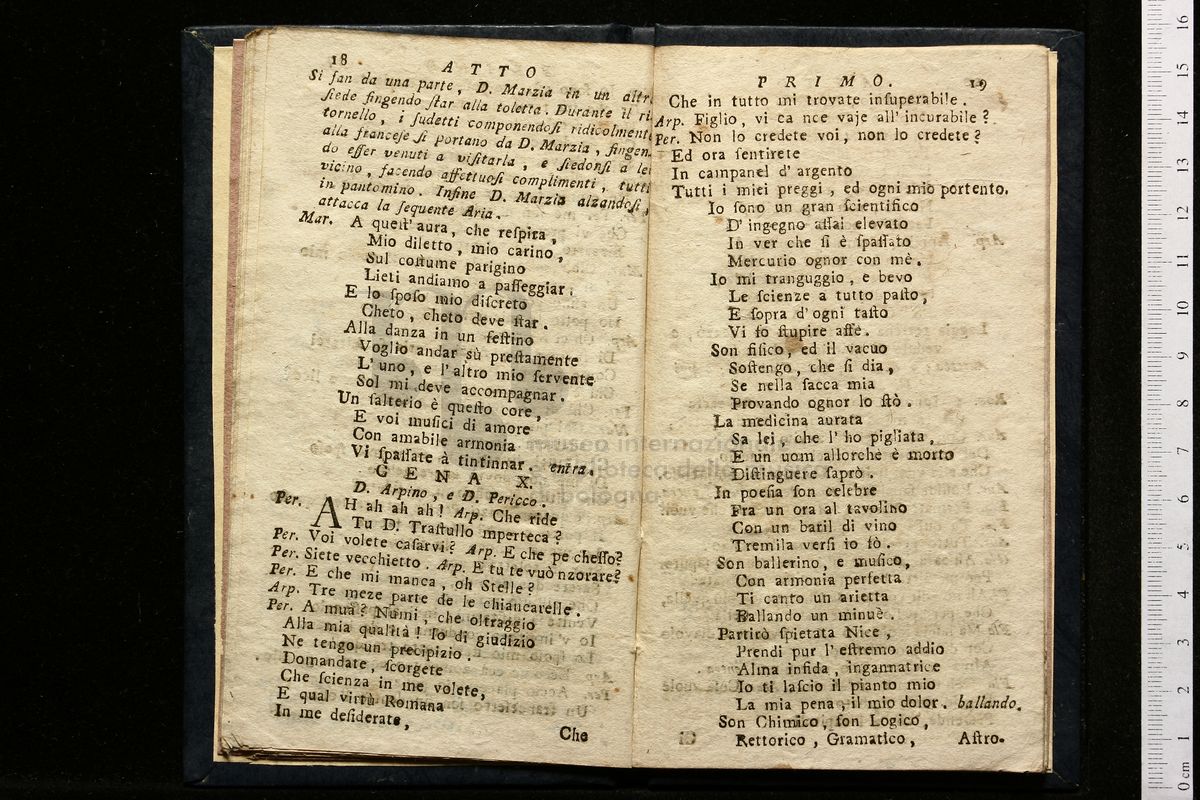 18
A T T O
Si ſan da una parte, D. Marzia in un altr
ſiede fingendo ſtar alla toletta. Durante il ri
tornello, i ſudetti componendoſi ridicolment
alla franceſe ſi portano da D. Marzia, fingen-
do eſſer venuti a viſitarla, e ſiedonſi a lei
vicino, facendo affettuoſi complimenti, tutti
in pantomino. Infine D. Marzia alzandoſi,
attacca la ſequente Aria.
Mar. A queſt' aura, che reſpira,
Mio diletto, mio carino,
Sul coſtume parigino
Lieti andiamo a paſſeggiar;
E lo ſpoſo mio diſcreto
Cheto, cheto deve ſtar.
Alla danza in un feſtino
Voglio andar sù preſtamente
L' uno, e l' altro mio ſervente
Sol mi deve accompagnar.
Un ſalterio è queſto core,
E voi muſici di amore
Con amabile armonia
Vi ſpaſſate à tintinnar. entra.
G E N A X.
D. Arpino, e D. Pericco.
Per. AH ah ah ah! Arp. Che ride
Tu D. Traſtullo mperteca?
Per. Voi volete caſarvi? Arp. E che pe cheſſo?
Per. Siete vecchietto. Arp. E tu te vuò nzorare?
Per. E che mi manca, oh Stelle?
Arp. Tre meze parte de le chiancarelle.
Per. A muà? Numi, che oltraggio
Alla mia qualità! Io di giudizio
Ne tengo un precipizio.
Domandate, ſcorgete
Che ſcienza in me volete,
E qual virtù Romana
In me deſiderate,
Che
P R I M O.
19
Che in tutto mi trovate inſuperabile.
Arp. Figlio, vi ca nce vaje all' incurabile?
Per. Non lo credete voi, non lo credete?
Ed ora ſentirete
In campanel d' argento
Tutti i miei preggi, ed ogni mio portento.
Io ſono un gran ſcientifico
D' ingegno aſſai elevato
In ver che ſi è ſpaſſato
Mercurio ognor con mè.
Io mi tranguggio, e bevo
Le ſcienze a tutto paſto,
E ſopra d' ogni taſto
Vi fo ſtupire affè.
Son fiſico, ed il vacuo
Soſtengo, che ſi dia,
Se nella ſacca mia
Provando ognor lo ſtò.
La medicina aurata
Sa lei, che l' ho pigliata,
E un uom allorchè è morto
Diſtinguere ſaprò.
In poeſia ſon celebre
Fra un ora al tavolino
Con un baril di vino
Tremila verſi io fò.
Son ballerino, e muſico,
Con armonia perfetta
Ti canto un arietta
Ballando un minuè.
Partirò ſpietata Nice,
Prendi pur l' eſtremo addio
Alma infida, ingannatrice
Io ti laſcio il pianto mio
La mia pena, il mio dolor. ballando.
Son Chimico, ſon Logico,
Rettorico, Gramatico,
Aſtro-